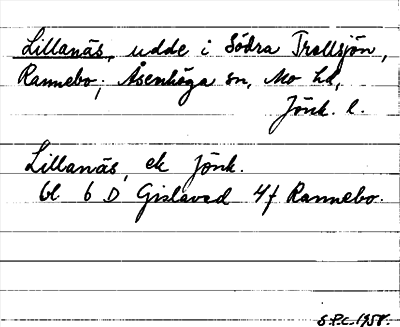 Lillanäs, udde i Södra Trollsjön,
Rannebo, Åsenhöga sn, Mo hd,
Jönk. l.
Lillanäs, ek Jönk.
bl 6 D Gislaved 4f Rannebo.
S.P.C. 1958.